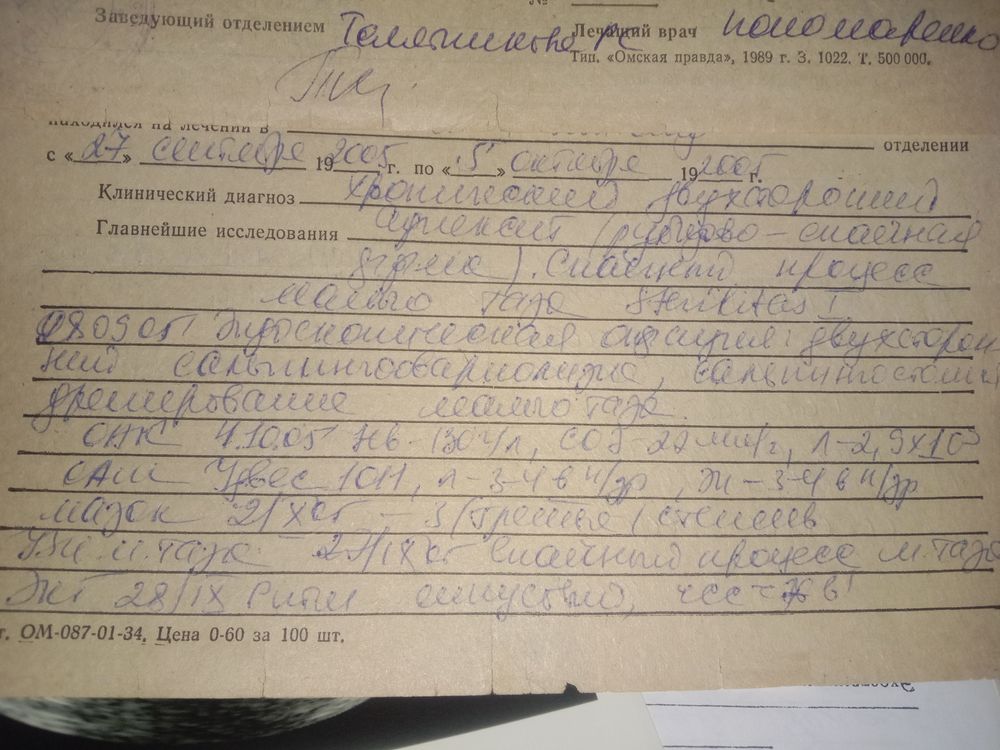 №
Заведующим отделением Лечащий врач Пономаренко
Тип. «Омская правда», 1989 г. З. 1022. Т. 500 000.
находился на лечении в
отделении
с «27» сентября 19 2005 г. по «5» октября 19 2005 г.
Клинический диагноз хронический двухсторонний
Главнейшие исследования аднексит (рубцово-спаечная
форма). Спаечный процесс
малого таза Sterilitas I.
280905 Эндоскопическая операция: двухсторон
ний сальпингоовариолизис, сальпингостомия
дренирование малого таза.
ОАК 4.10.05 Нв-130 г/л, СОЭ-22 мм/г, Л-2,9х10
ОАМ Уд вес 1011, л-3-4 в п/зр, эп-3-4 в п/зр
мазок 2/X 05 - 3 (третья) степень
УЗИ м. таза 27/IX 05 спаечный процесс м. таза
ЭКГ 28/IX Ритм синусовый, ЧСС-76 в'
г. ОМ-087-01-34. Цена 0-60 за 100 шт.